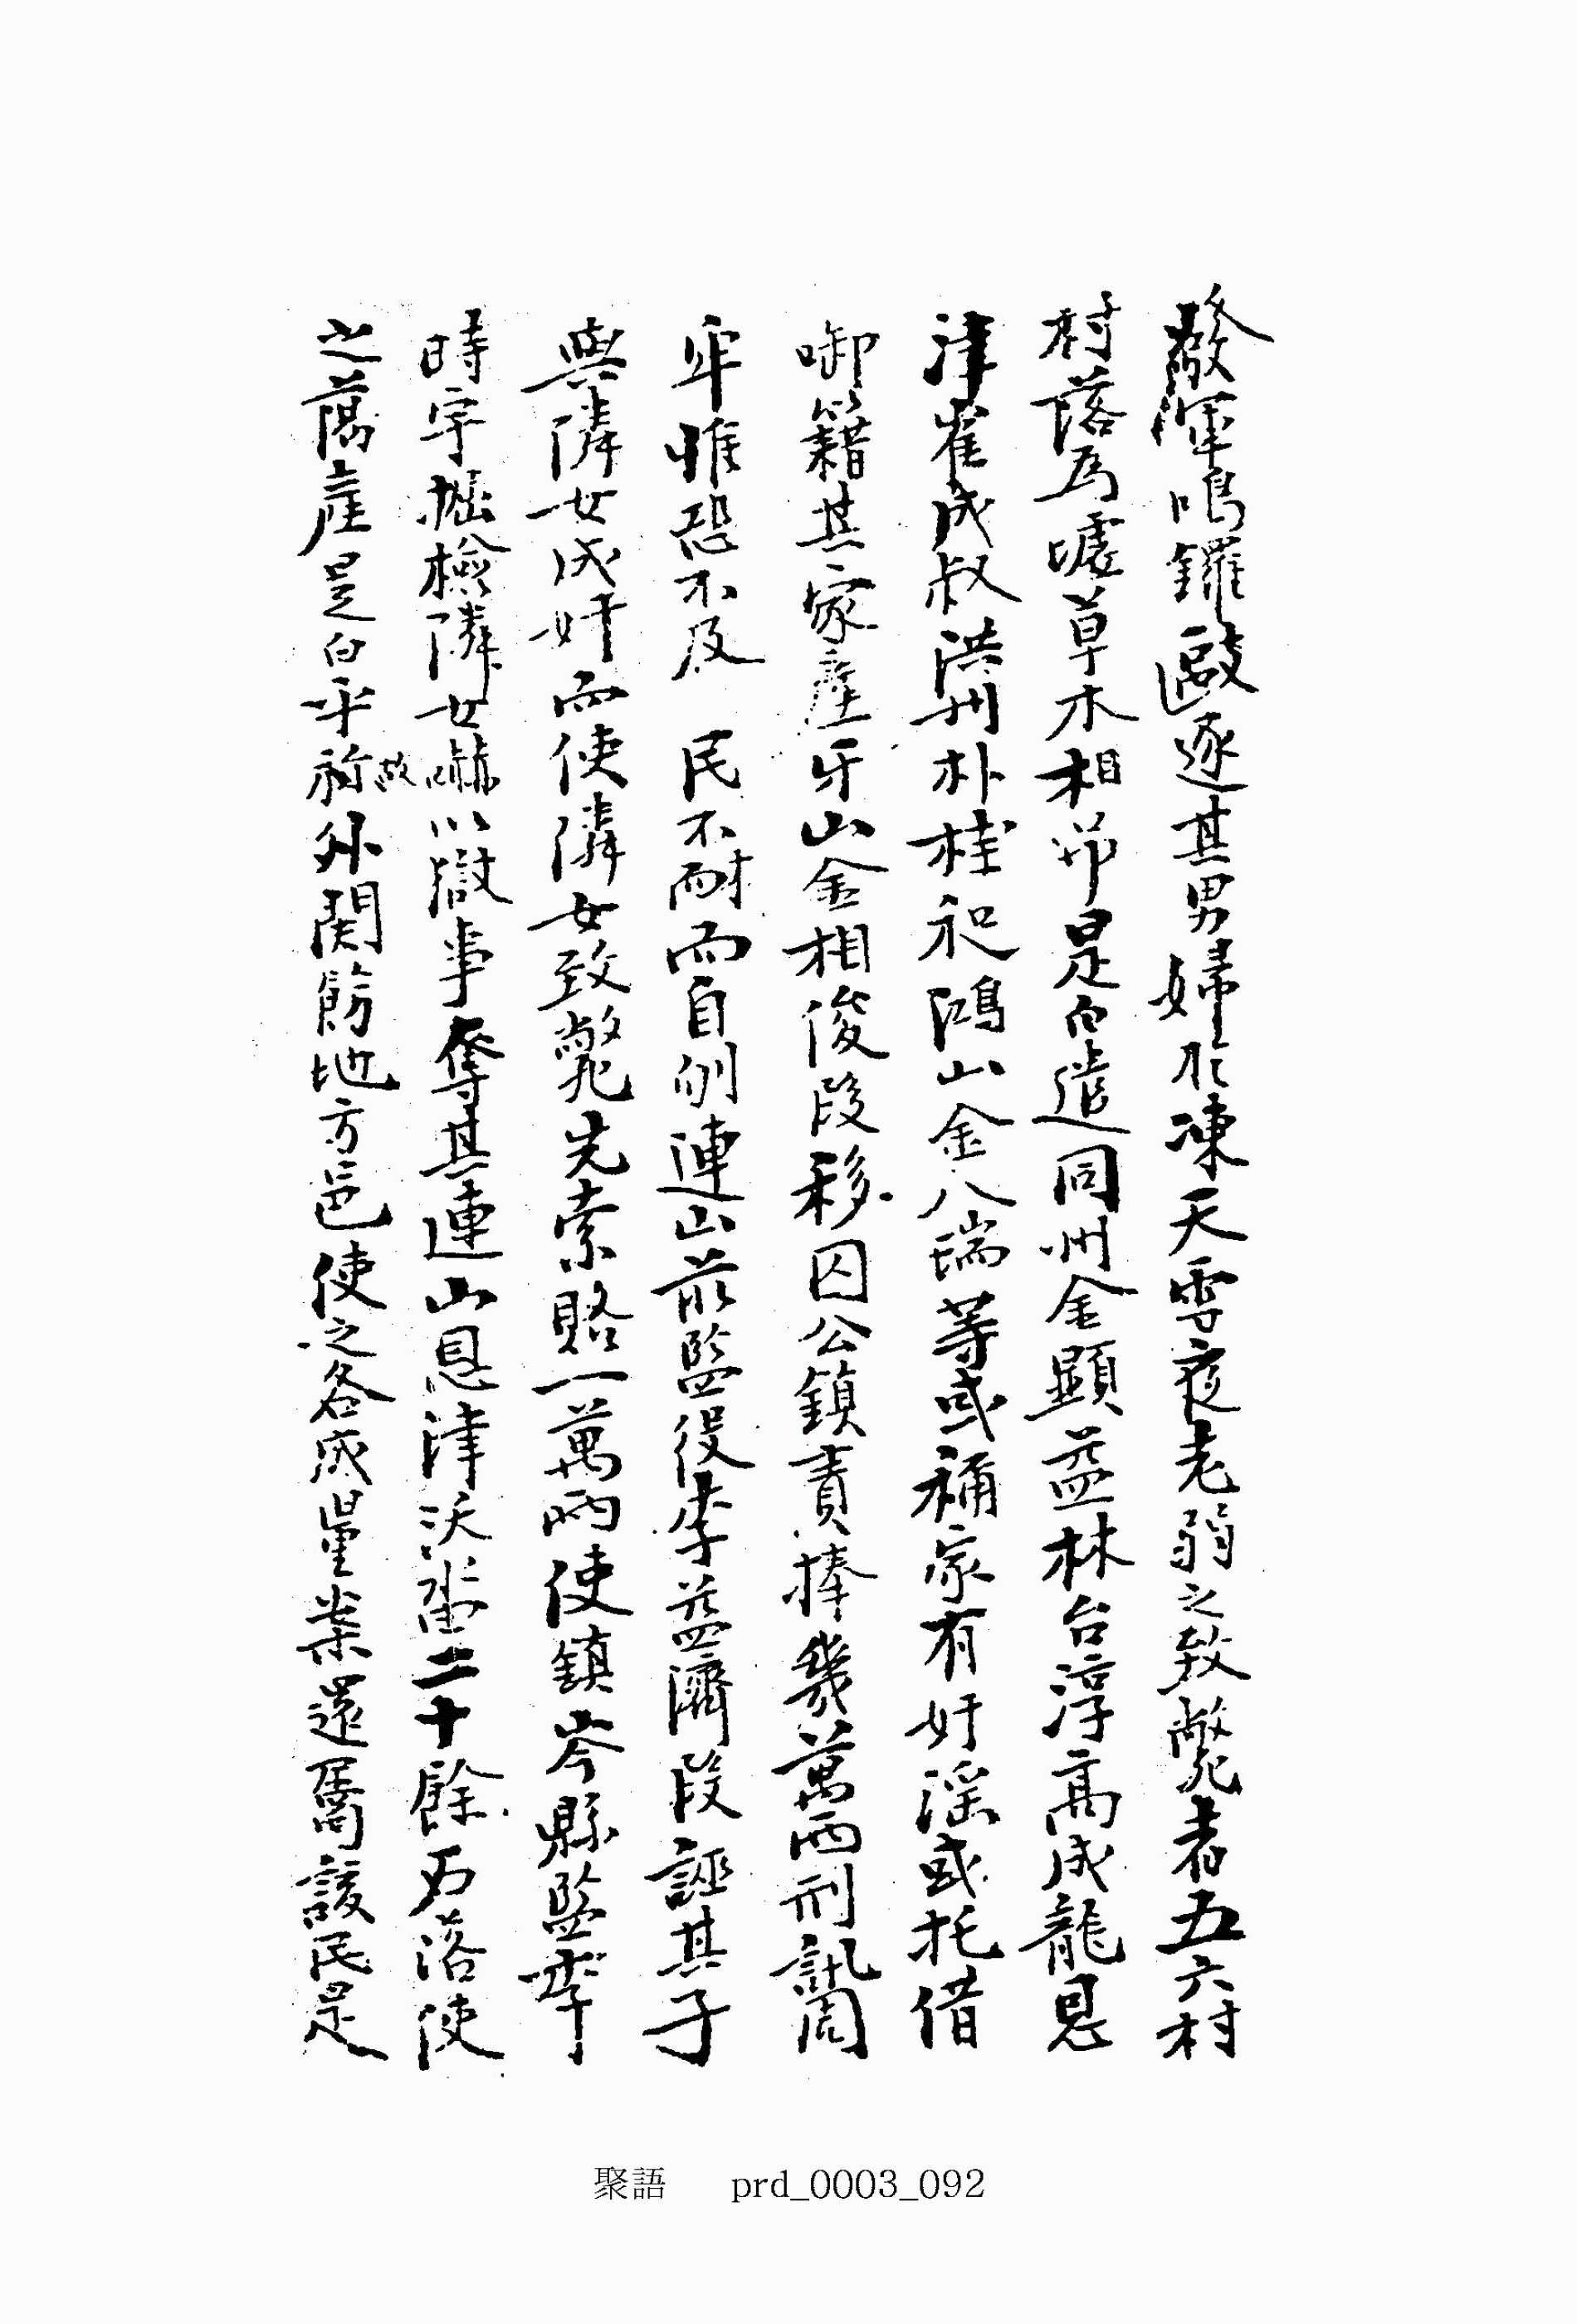 發軍鳴鑼毆逐其男婦於凍天雪夜老弱之致斃者五六村
村落爲墟草木相吊是白遣同州金顯益林台淳高成龍恩
津崔成叔洪州朴桂祀鴻山金八瑞等或稱家有奸淫或托借
啣籍其家産牙山金相俊段移囚公鎭責捧幾萬兩刑訊周
牢惟恐不及 民不耐而自刎連山前監役李益濟段誣其子
與隣女成奸而使隣女致斃先索賂一萬兩使鎭岑縣監李
時宇掘檢隣女嚇以獄事奪其連山恩津沃畓二十餘石落使
之蕩産是白乎所故外関飭地方邑使之各成量案還屬該民是
聚語 prd_0003_092